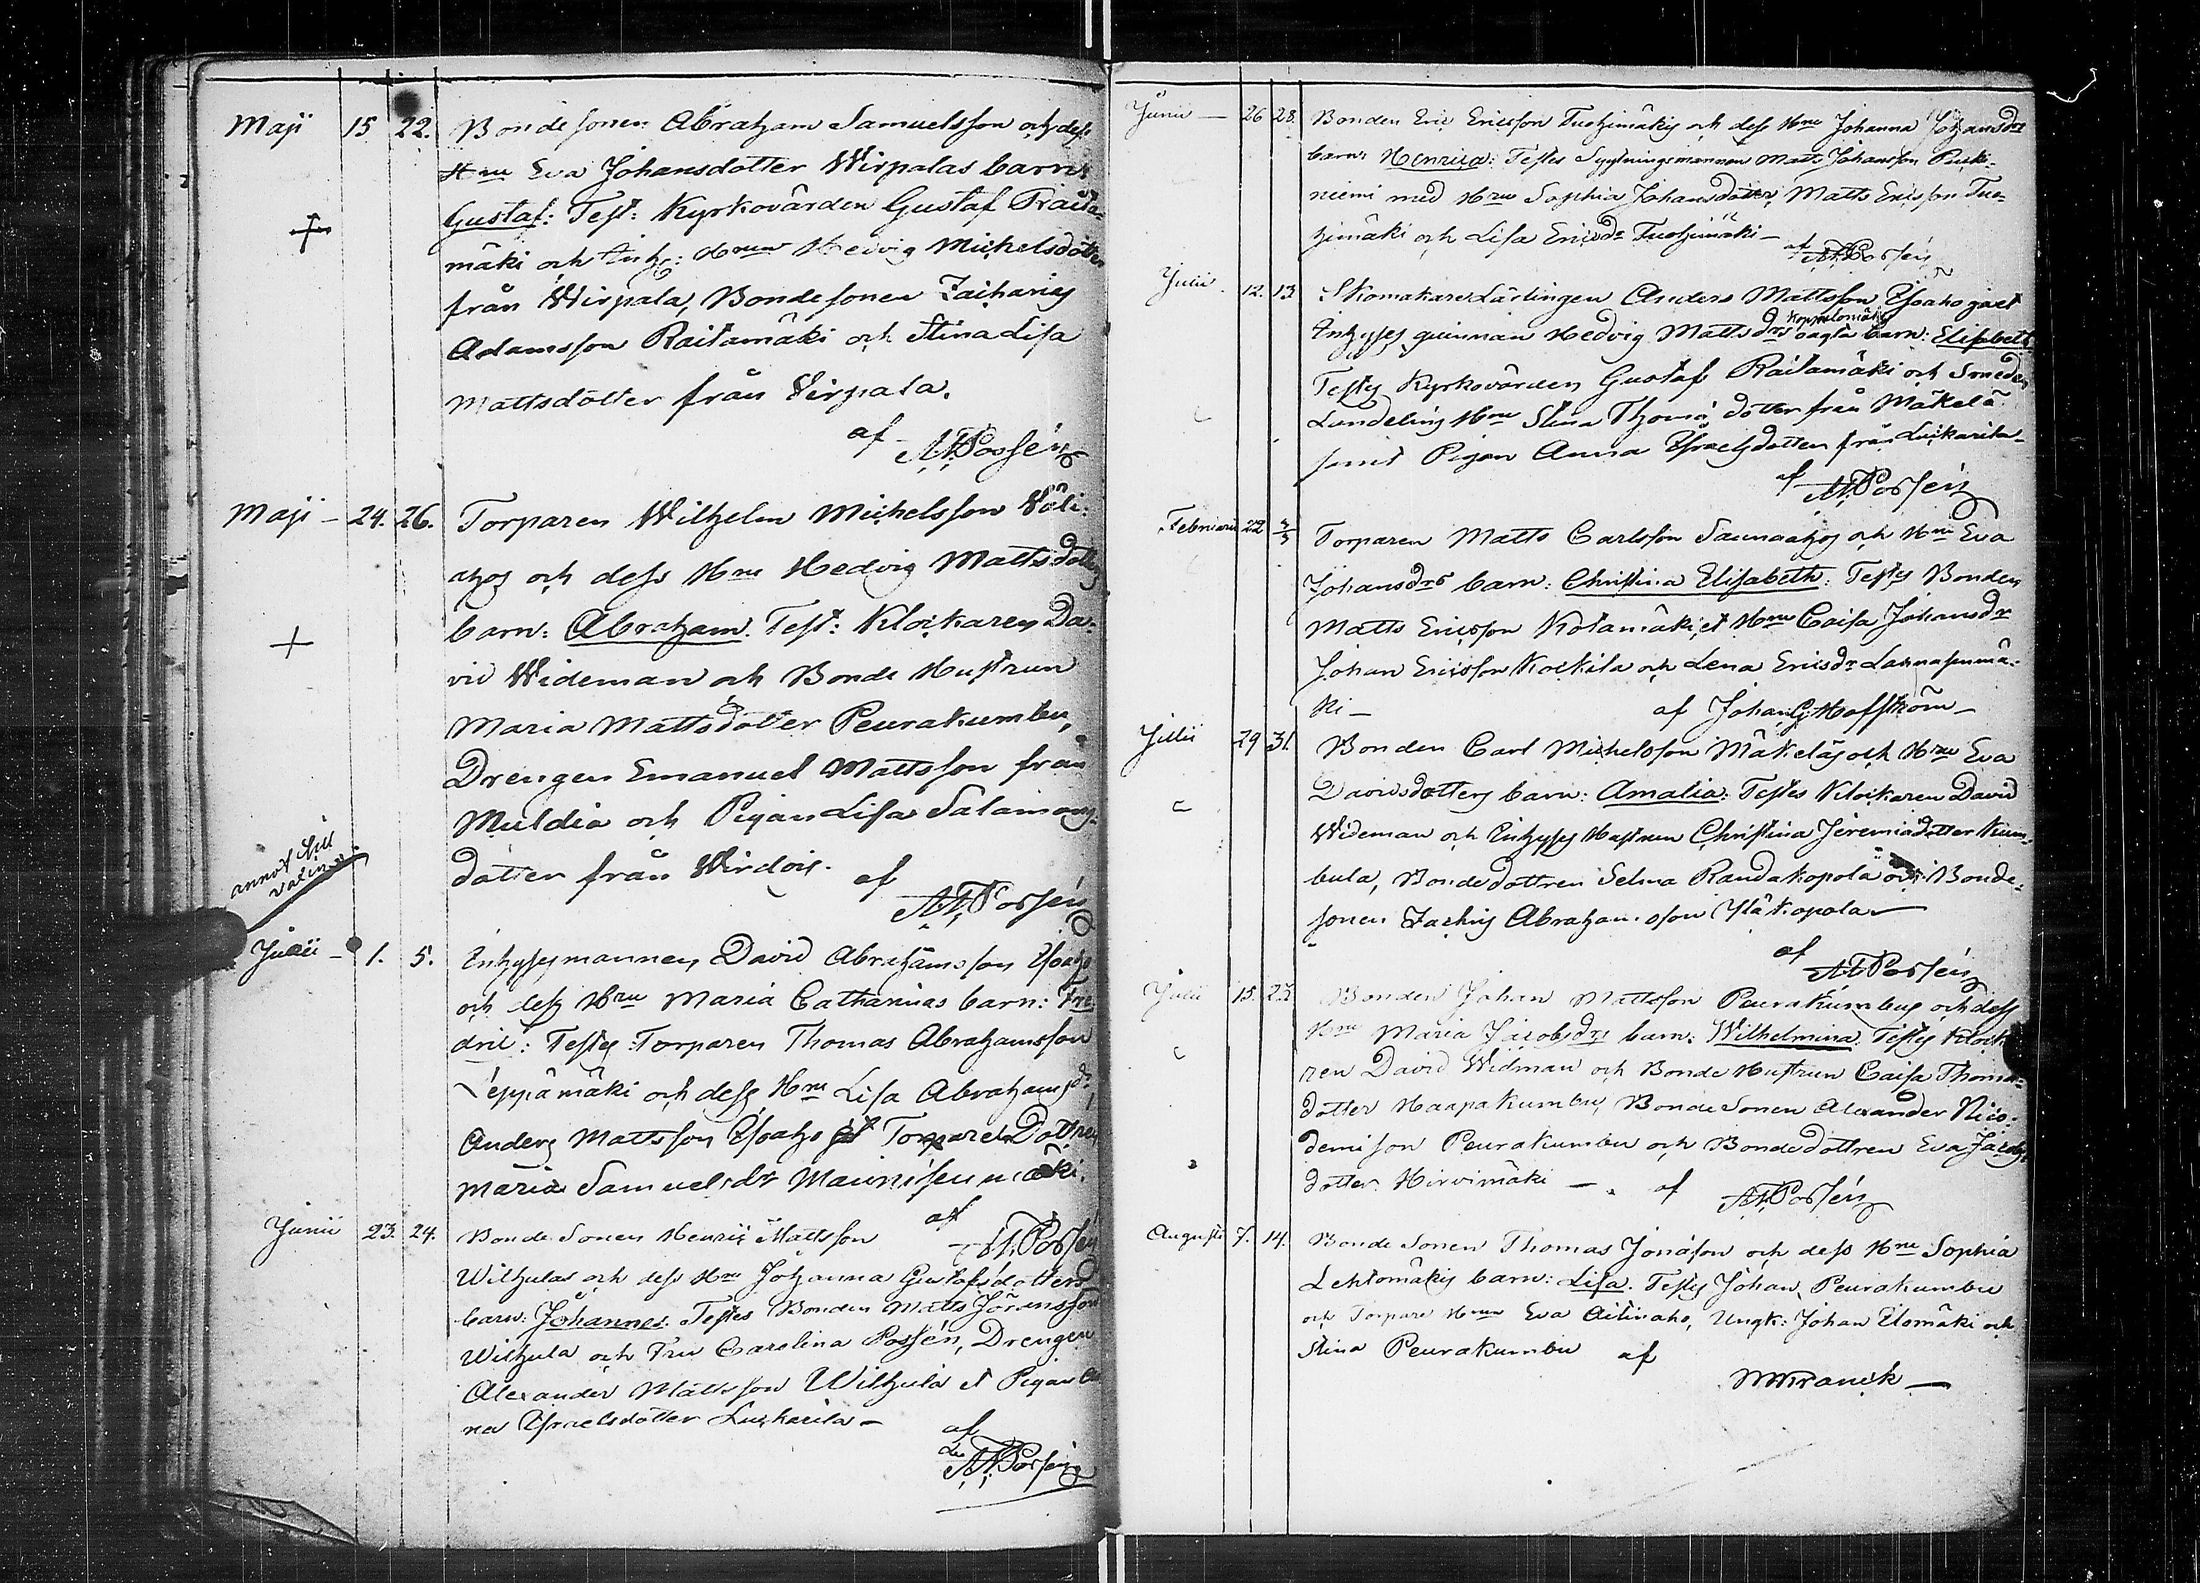 Maji 15 22. Bondesonen Abraham Samuelsson och dess
Hru Eva Johansdotter Wirpalas barn
Gustaf: Test: Kyrkovärden Gustaf Raita-
mäki och Enk: Hedvig Michelsdotter
från Wirpala, Bondesonen Zacharias
Adamsson Raitamäki och Stina Lisa
Mattsdotter från Virpala.
af
Maji - 24. 26. Torparen Wilhelm Michelsson Väli-
ahos och dess Hru Hedvig Mattsdotters
barn: Abraham. Test: Klockaren Da-
vid Wideman och Bonde Hustrun
Maria Mattsdotter Peurakumbu,
Drengen Emanuel Mattsson från
Muldia och Pigan Lisa Salamons-
dotter från Wirdois.
af
annot
Julii - 1. 5. Inhysesmannen David Abrahamsson
och dess Hru Maria Catharinas barn: Fre-
dric: Testes: Torparen Thomas Abrahamsson
Leppämäki och dess Hru Lisa Abrahamsdr,
Anders Mattsson et Torpare Dottren
Maria Samuelsdr
af
Junii 23. 24. Bonde Sonen Henric Mattsson
Wilhulas och dess Hru Johanna Gustafsdotters
barn: Johannes. Testes Bonden Matts Göransson
Wilhula och Fru Carolina Possén, Drengen
Alexander Mattsson Wilhula et Pigan An
na Israelsdotter Luckarila -
af
Junii - 26 28. Bonden Eric Ericsson Tuohimäkis och dess Hru Johanna Johansdrs
barn: Henrica: Testes Sytningsmannen Matts Johansson
niemi med Hru Sophia Johansdotter, Matts Ericsson Tuo-
himäki och Lisa Ericsdr Tuohimäki -
af
Julii. 12. 13 Skomakare Lärlingen Anders Mattsson et
Inhyses qvinnan Hedvig Mattsdrs barn: Elisabeth
Testes Kyrkovärden Gustaf Raitamäki och Smeden
Hru Stina dotter från Mäkelä
samt Pigan Anna Israelsdotter från Luckarila -
af
Februarii 22 Torparen Matts Carlsson Saunaahos och Hru Eva
Johansdrs barn: Christina Elisabeth: Testes Bonden
Matts Ericsson Kotamäki, et Hru Caisa Johansdr
Johan Ericsson Kockila och Lena Ericsdr
ki - af Johan G Hoffström -
Julii 29 31. Bonden Carl Michelsson Mäkeläs och Hru Eva
Davidsdotters barn: Amalia: Testes Klockaren David
Wideman och Inhyses Hustrun Christina Jeremiædotter Kum-
bula, Bondedottren Selma och Bonde-
sonen Abrahamsson Yläkopola -
af
Julii 15. 23. Bonden Johan Mattsson Peurakumbus och dess
Hru Maria Jacobsdrs barn: Wilhelmina. Testes Klocka
ren David Widman och Bonde Hustrun Caisa Thomæ-
dotter Haapakumbu, Bonde Sonen Alexander Nico-
demison Peurakumbu och Bondedottren Eva Jacobs-
dotter Hirvimäki - af
Augusti 7. 14. Bonde Sonen Thomas Jonasson och dess Hru Sophia
Lehtomäkis barn: Lisa. Testes Johan Peurakumbu
och Torpare Hrun Eva, Ungk: Johan och
Stina Peurakumbu af